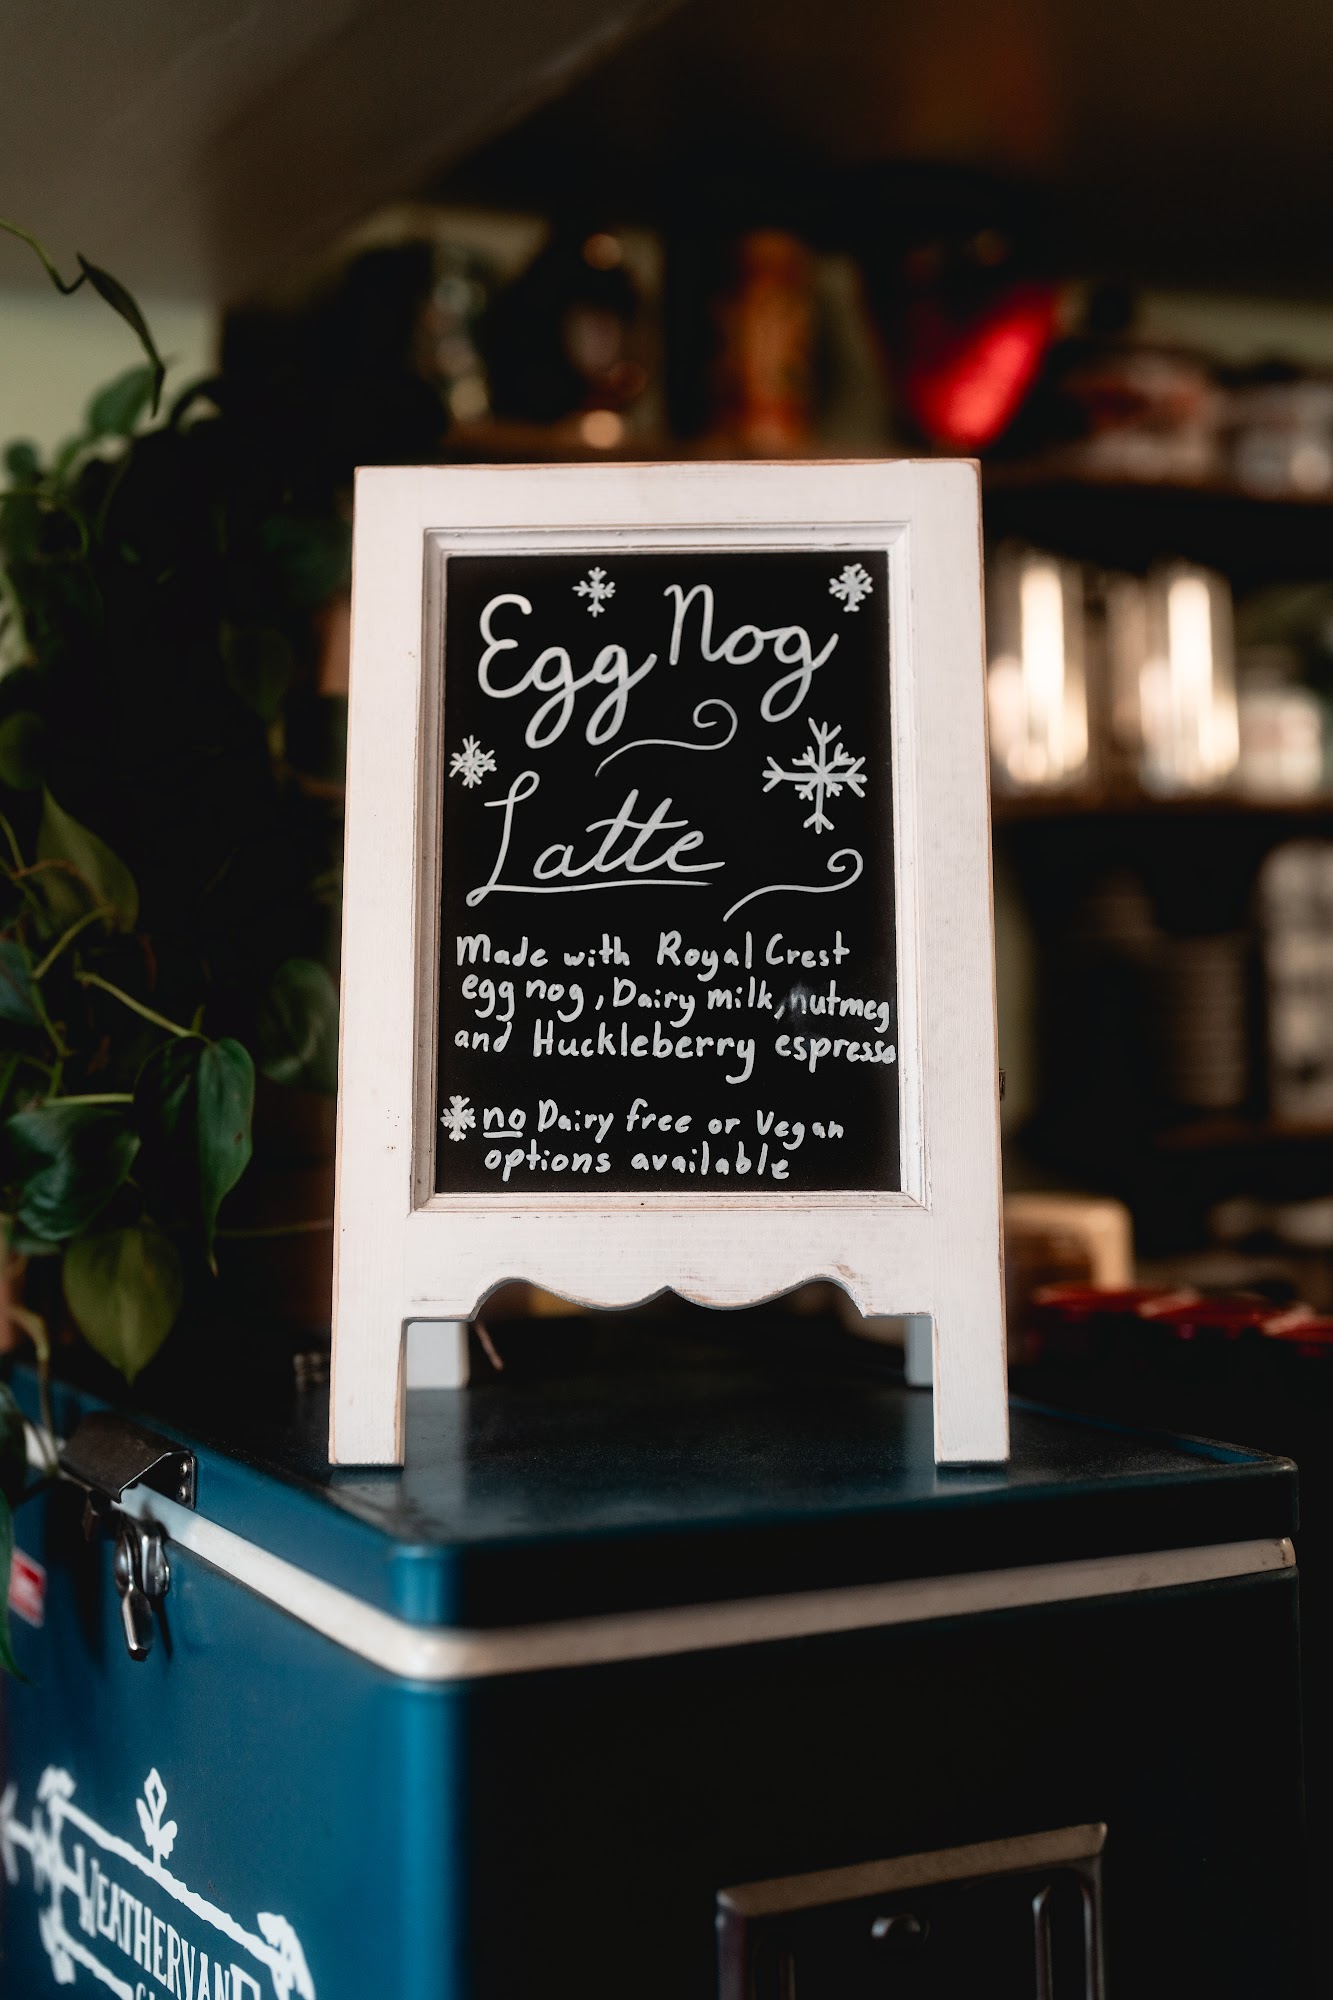 Egg Nog
Latte
Made with Royal Crest
egg nog, Dairy milk, nutmeg
and Huckleberry espresso
no Dairy free or Vegan
options available
WEATHERVANE